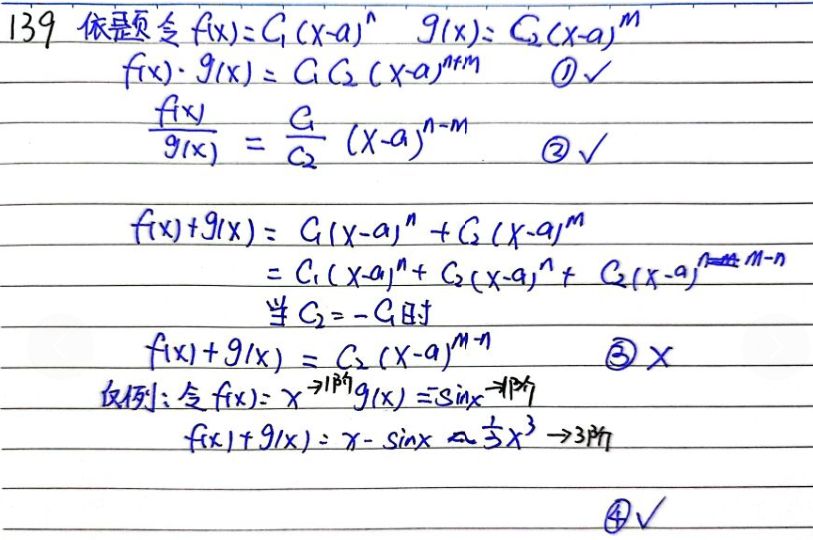 139 依题令 f(x)=C₁(x-a)ⁿ g(x)=C₂(x-a)ᵐ
f(x)·g(x)=C₁C₂(x-a)ⁿ⁺ᵐ ①✓
f(x)/g(x) = C₁/C₂ (x-a)ⁿ⁻ᵐ ②✓
f(x)+g(x)= C₁(x-a)ⁿ+C₂(x-a)ᵐ
=C₁(x-a)ⁿ+C₂(x-a)ⁿ+ C₂(x-a)ᵐ⁻ⁿ
当C₂=-C₁时
f(x)+g(x)=C₂(x-a)ᵐ⁻ⁿ ③×
反例:令f(x)=x→1阶 g(x)=-sinx→1阶
f(x)+g(x)=x-sinx ~ 1/3x³ →3阶
④✓